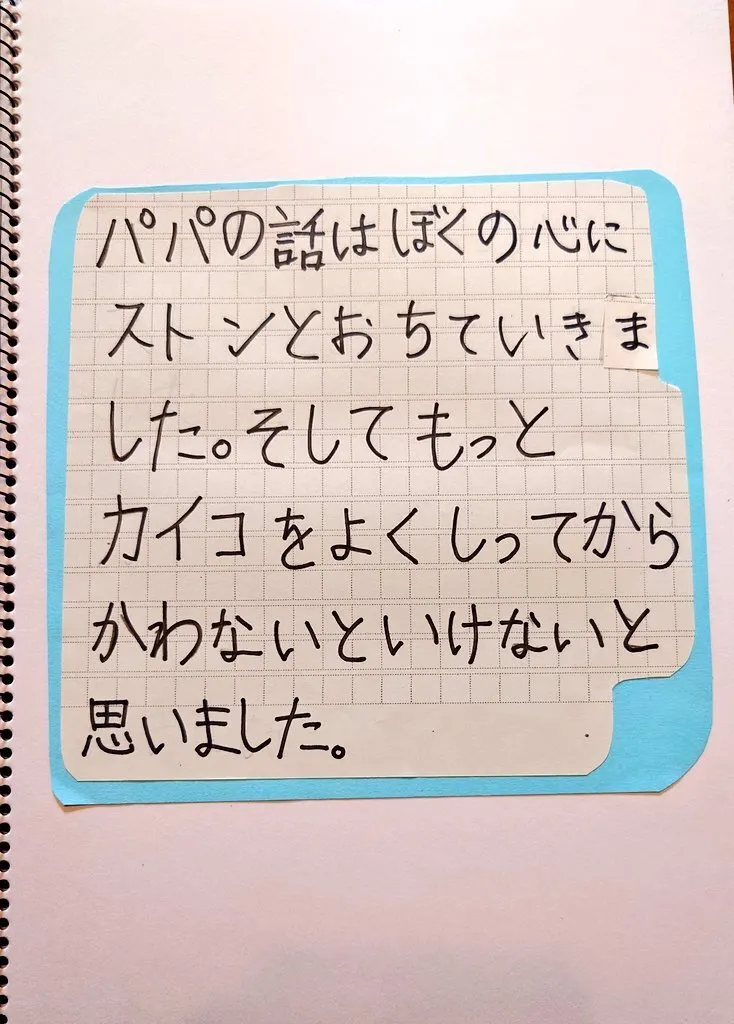 パパの話はぼくの心に
ストンとおちていきま
した。そしてもっと
カイコをよくしってから
かわないといけないと
思いました。